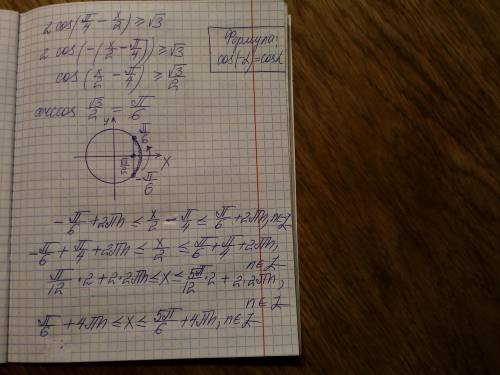 2 cos(π/4 − x/2) ≥ √3
2 cos(−(x/2 − π/4)) ≥ √3
cos(x/2 − π/4) ≥ √3/2
Формула:
cos(-α)=cosα
arccos √3/2 = π/6
y
π/6
x
√3/2
-π/6
-π/6 + 2πn ≤ x/2 − π/4 ≤ π/6 + 2πn, n∈Z
-π/6 + π/4 + 2πn ≤ x/2 ≤ π/6 + π/4 + 2πn,
n∈Z
π/12 · 2 + 2·2πn ≤ x ≤ 5π/12 · 2 + 2·2πn,
n∈Z
π/6 + 4πn ≤ x ≤ 5π/6 + 4πn, n∈Z